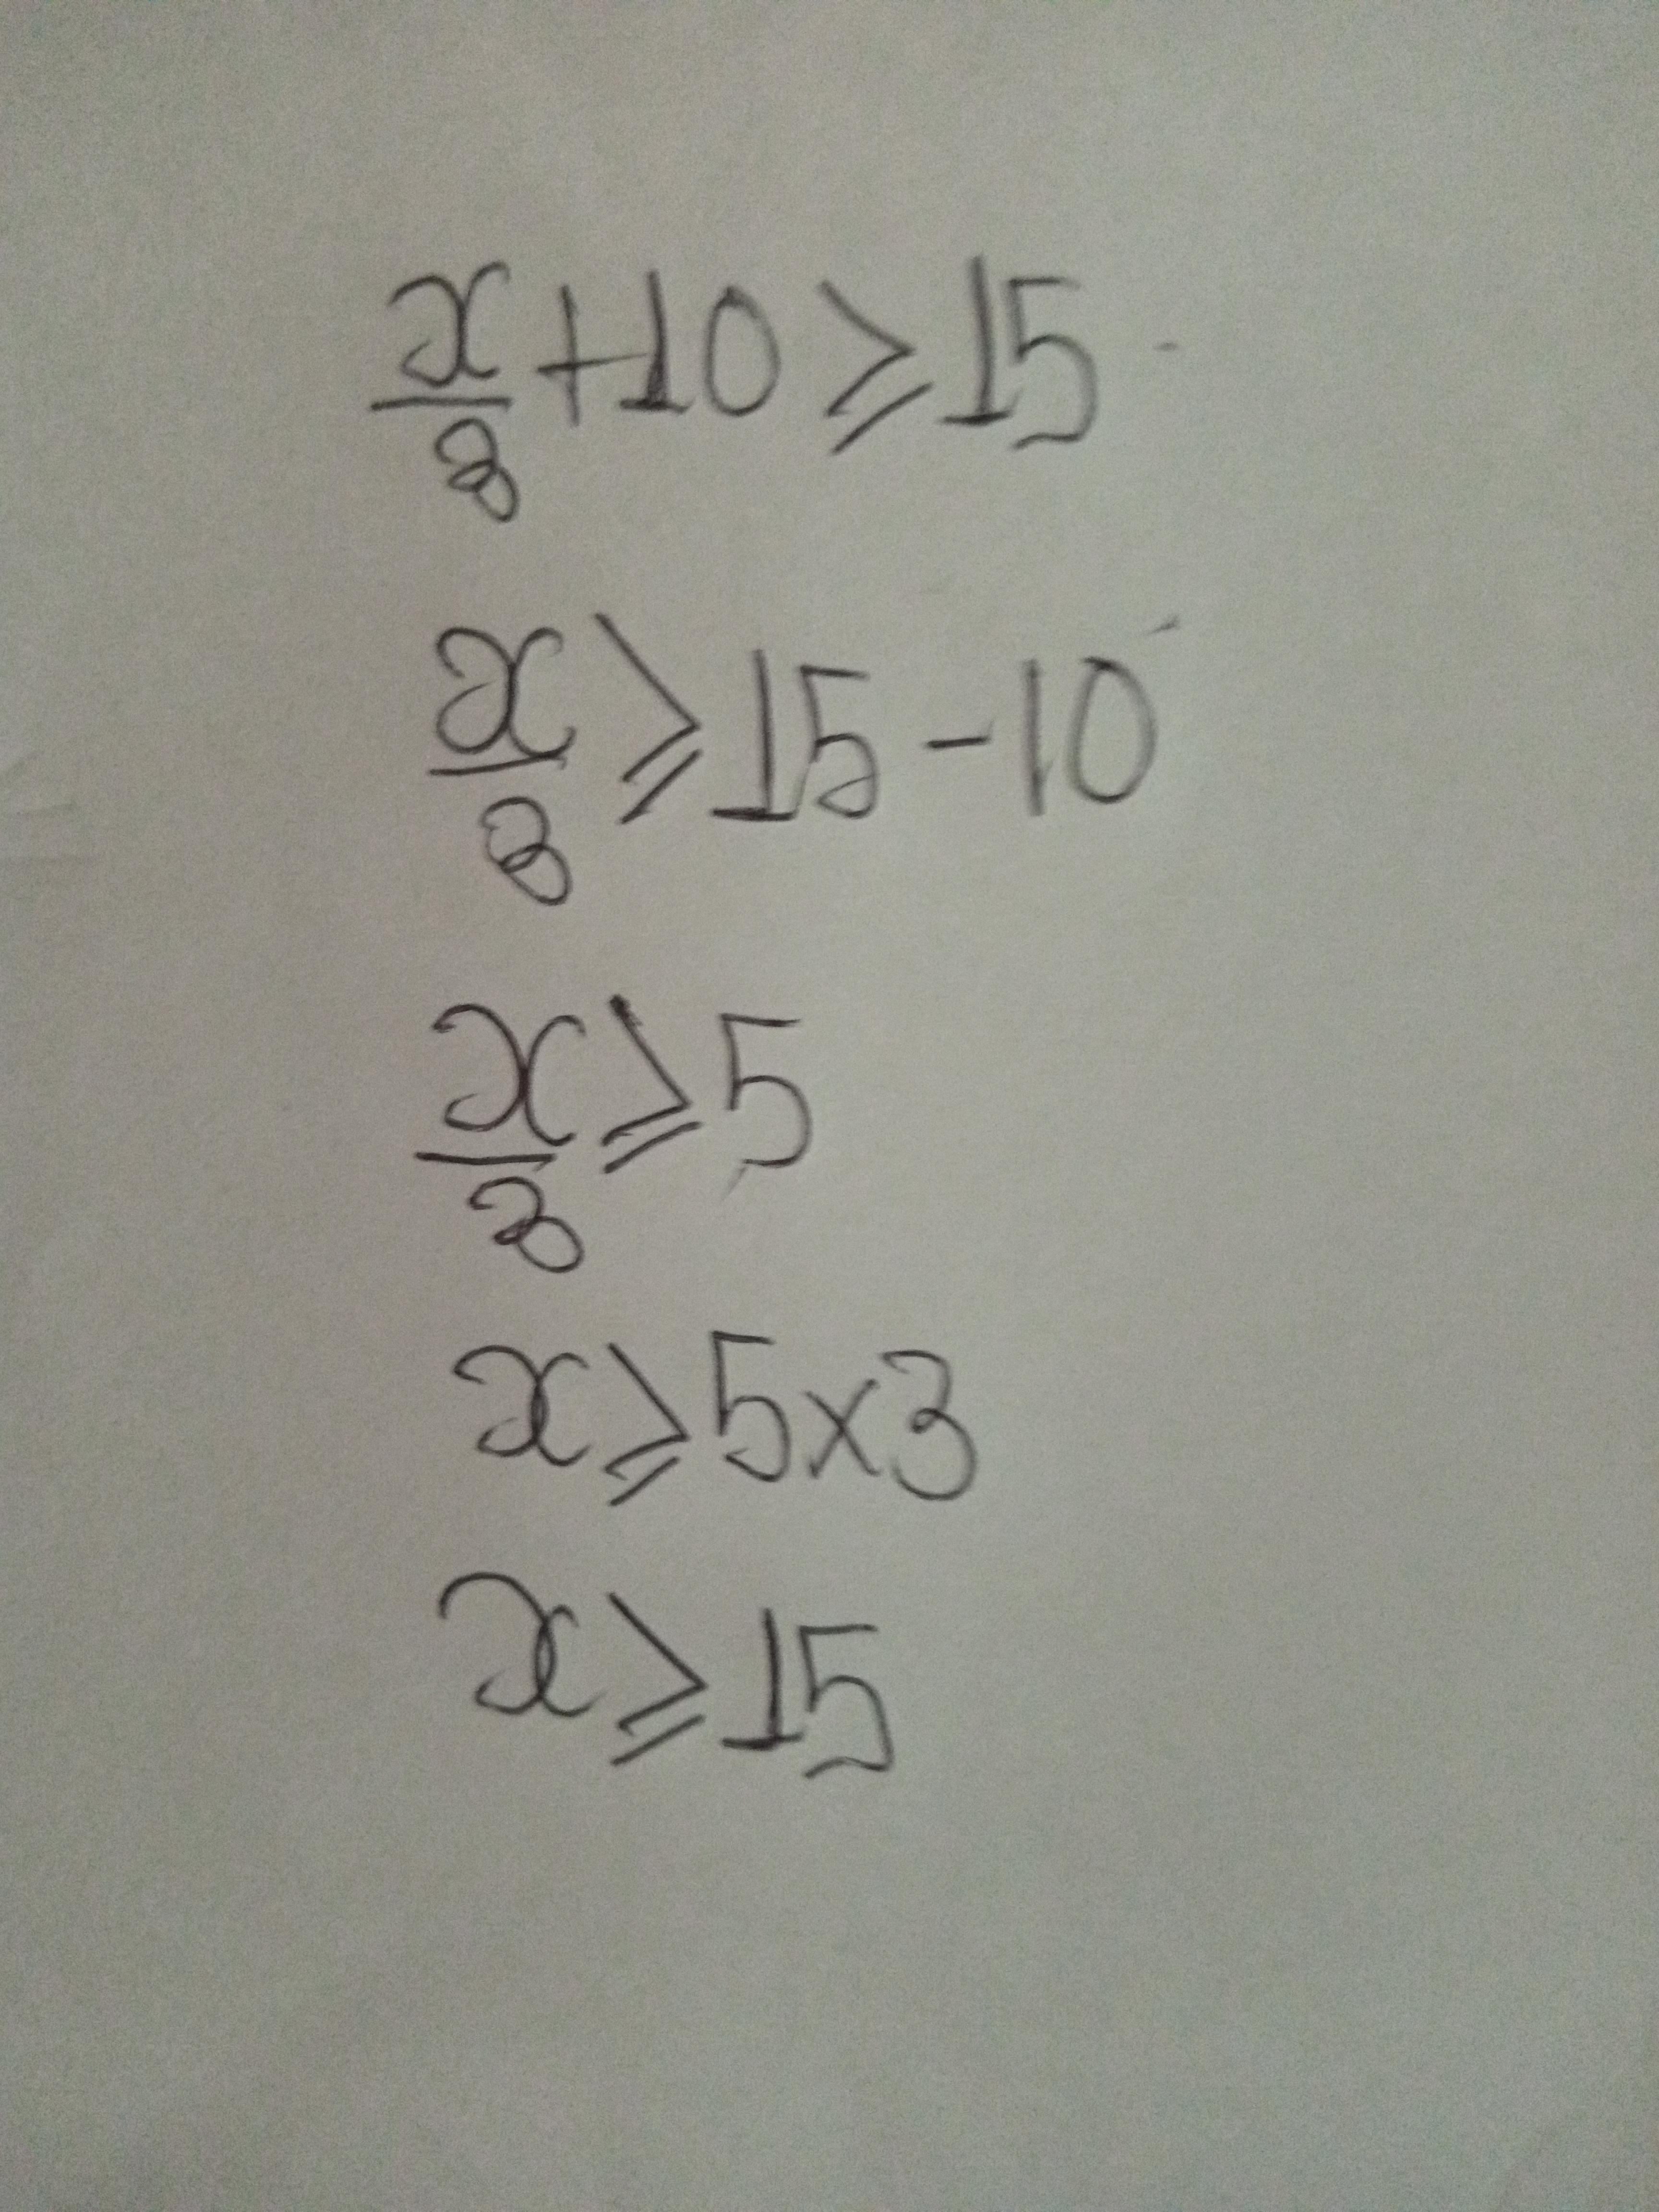 x/3 + 10 ≥ 15
x/3 ≥ 15 - 10
x/3 ≥ 5
x ≥ 5 × 3
x ≥ 15